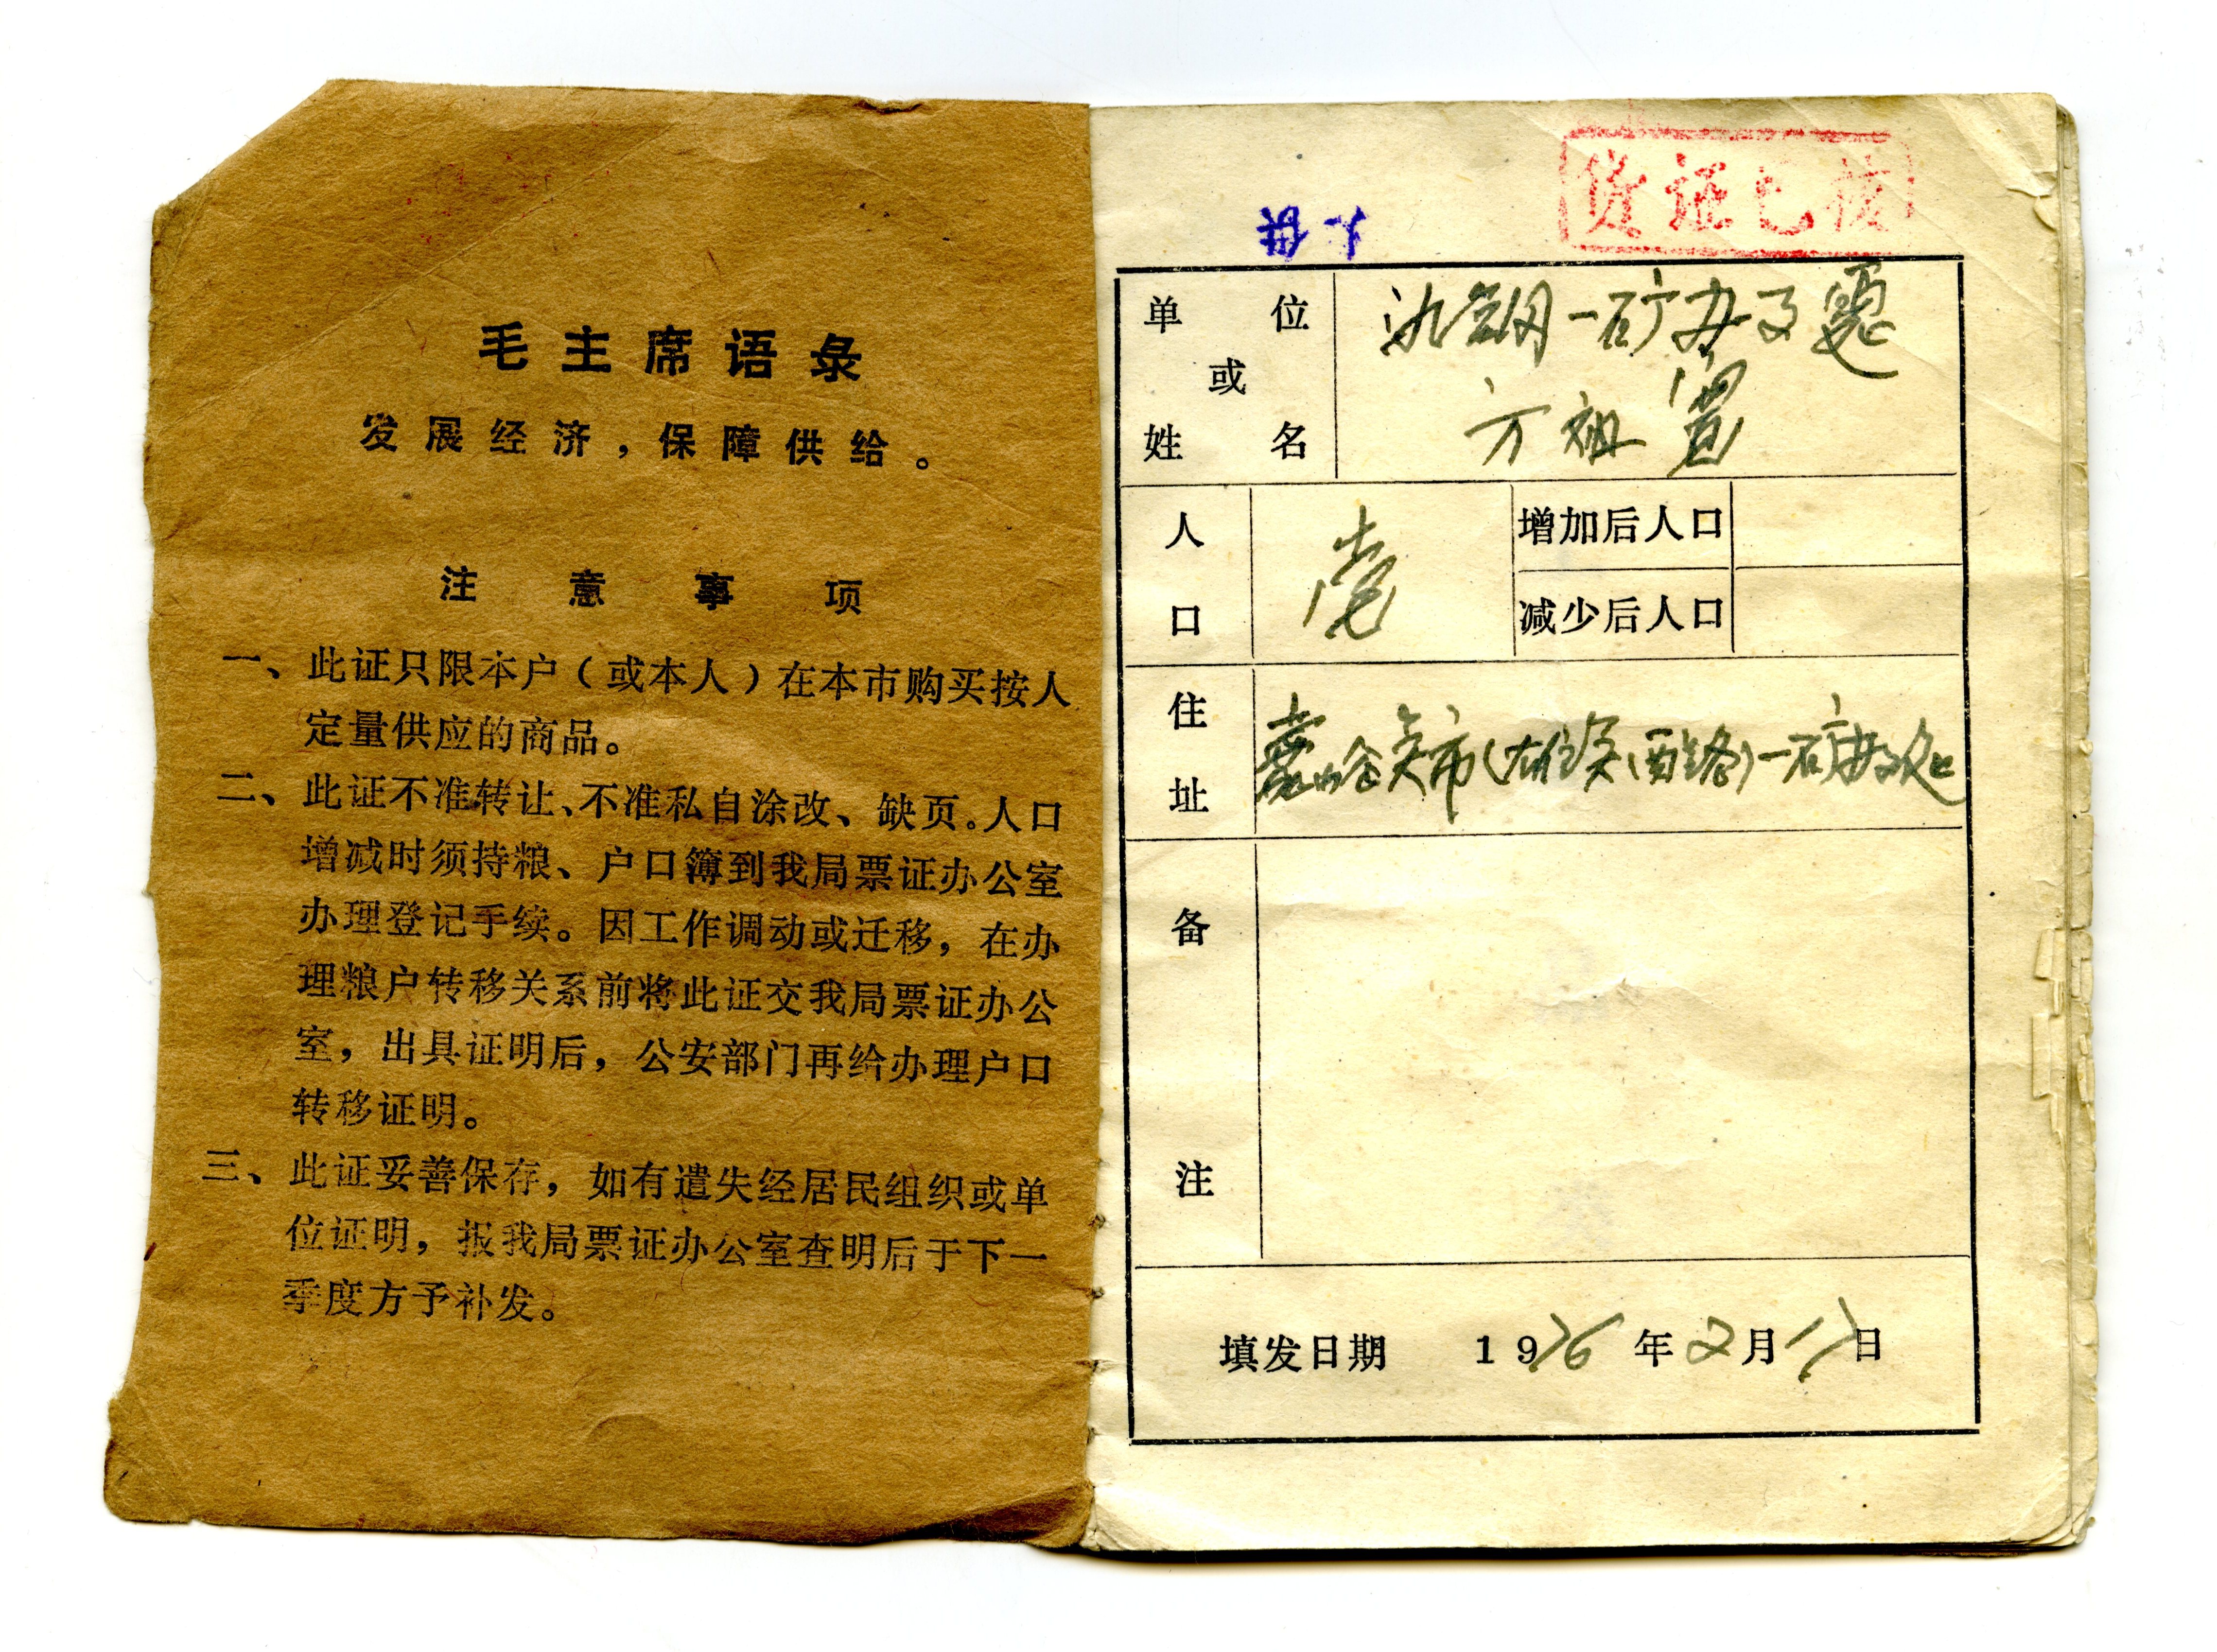 毛主席语录
发展经济，保障供给。
注意事项
一、此证只限本户（或本人）在本市购买按人
定量供应的商品。
二、此证不准转让、不准私自涂改、缺页。人口
增减时须持粮、户口簿到我局票证办公室
办理登记手续。因工作调动或迁移，在办
理粮户转移关系前将此证交我局票证办公
室，出具证明后，公安部门再给办理户口
转移证明。
三、此证妥善保存，如有遗失经居民组织或单
位证明，报我局票证办公室查明后于下一
季度方予补发。
证已核
单位
或
姓名
一矿办
方祖
人口
壹
增加后人口
减少后人口
住址
市
一矿办
备注
填发日期 1976年2月日